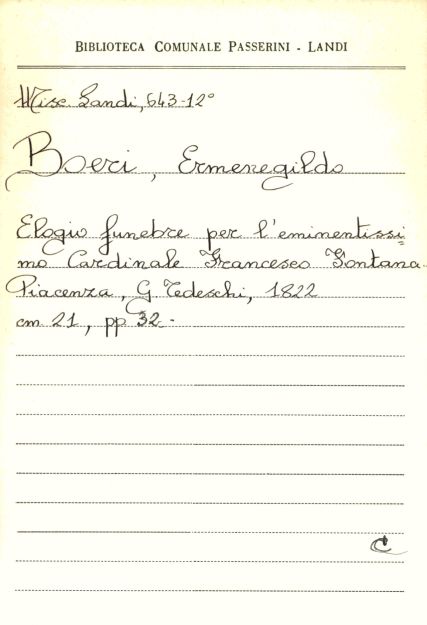 BIBLIOTECA COMUNALE PASSERINI - LANDI
Misc Landi, 643-12°
Boeri, Ermenegildo
Elogio funebre per l'eminentissi=
mo Cardinale Francesco Fontana.
Piacenza, G Tedeschi, 1822
cm 21, pp 32.
C